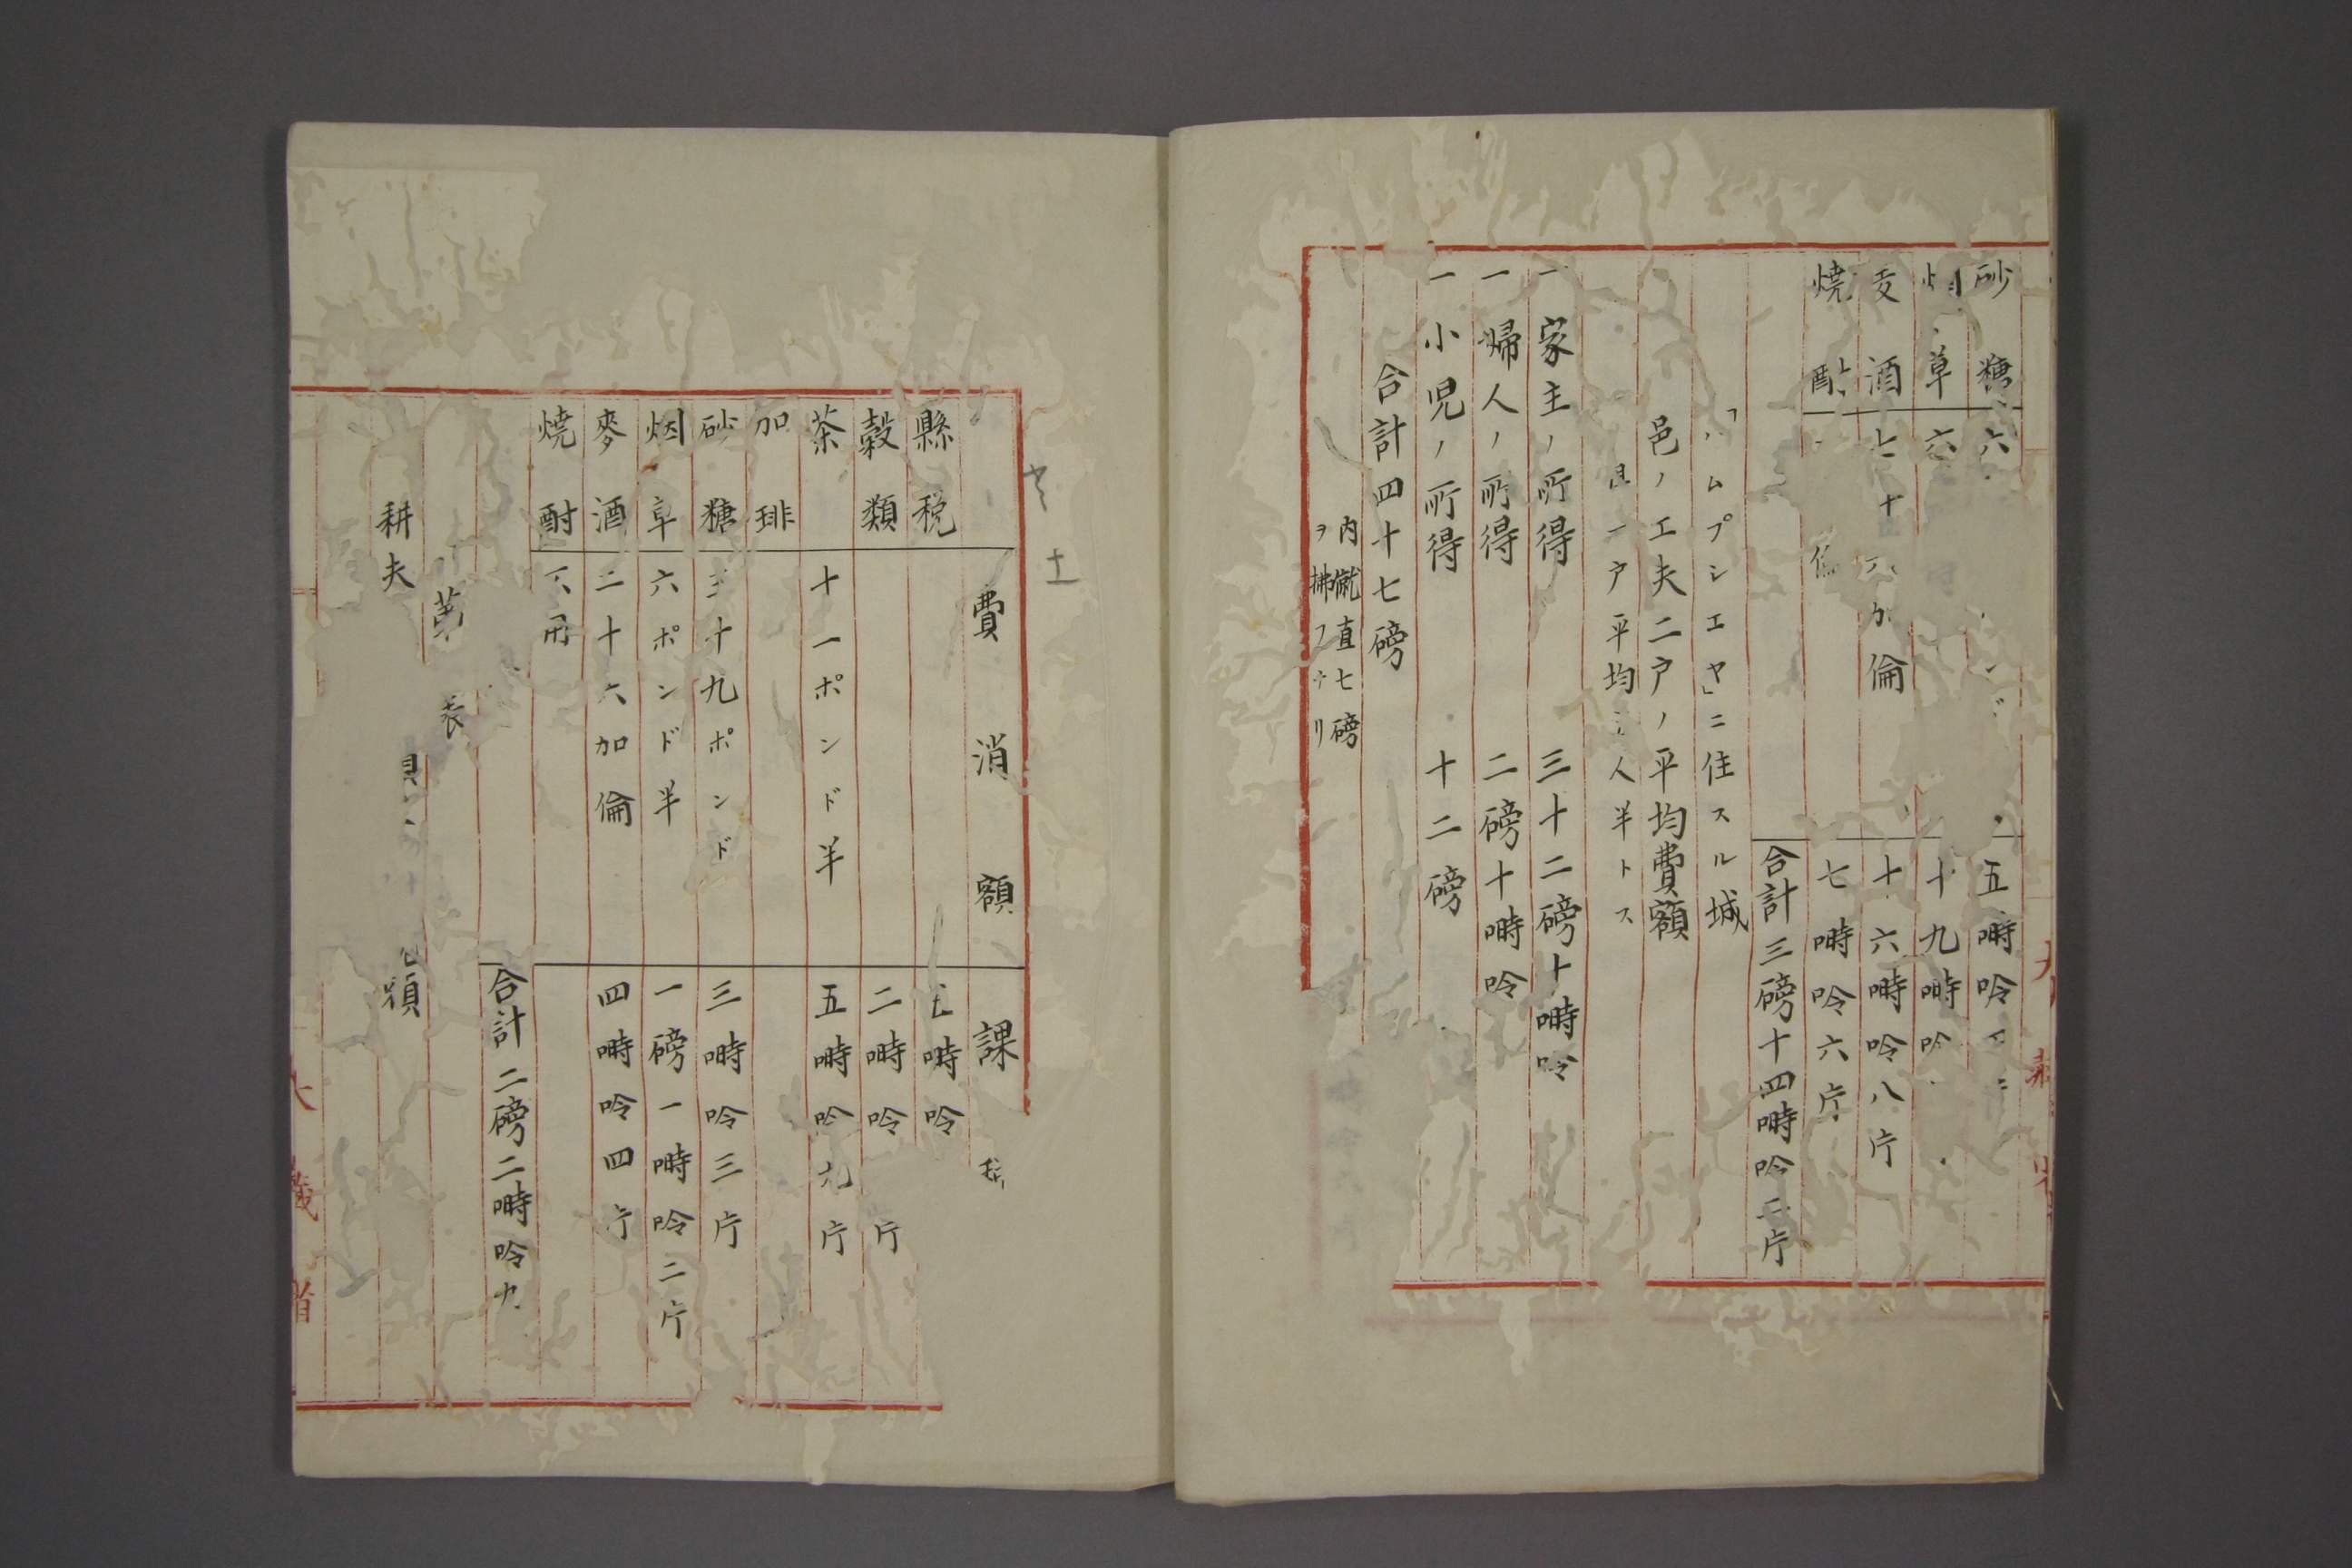 砂糖 六 五時呤
烟草 六 十九時呤
麦酒 七十 加倫 十六時呤八斤
焼酎 七時呤六斤
合計三磅十四時呤二斤
「ハムプシエヤ」ニ住スル城
邑ノ工夫二戸ノ平均費額
但一戸平均 人半トス
一 家主ノ所得 三十二磅十時呤
一 婦人ノ所得 二磅十時呤
一 小児ノ所得 十二磅
合計四十七磅
内僦直七磅
ヲ拂フナリ
七十一
費消額 課税
縣税 五時呤
穀類 二時呤 片
茶 十一ポンド半 五時呤九片
加琲
砂糖 三十九ポンド 三時呤三片
烟草 六ポンド半 一磅一時呤二片
麥酒 二十六加倫 四時呤四片
焼酎 不用
合計二磅二時呤九
第 表
耕夫 額
大蔵省